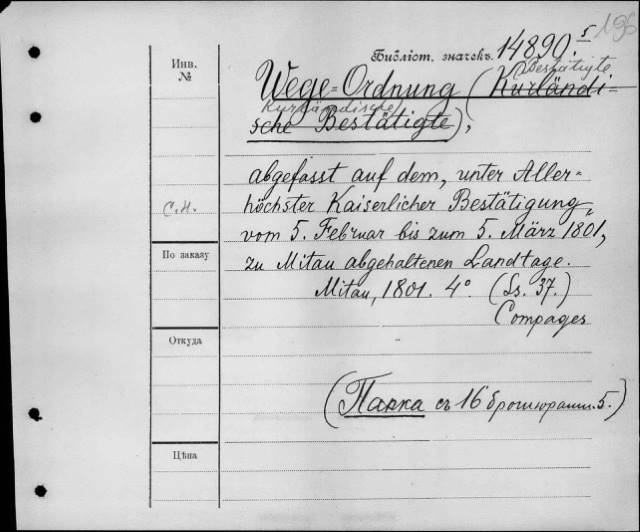 196
Библіот. значекъ. 14890.5
Инв.
№
Bestätigte
Wege=Ordnung (Kurländi-
Kurländische)
sche Bestätigte),
abgefasst auf dem, unter Aller=
höchster Kaiserlicher Bestätigung,
С.Н.
vom 5. Februar bis zum 5. März 1801,
По заказу
zu Mitau abgehaltenen Landtage.
Mitau, 1801. 4° (Ss. 37.)
Compages
Откуда
(Папка съ 16 брошюрами. 5.)
Цѣна